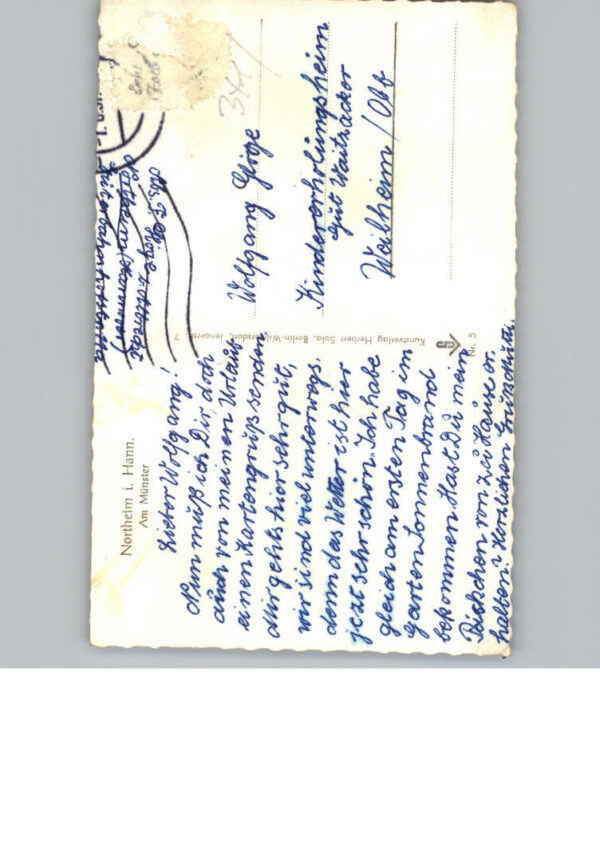 Northeim i. Hann.
Am Münster
Lieber Wolfgang!
Nun muß ich Dir, doch
auch von meinen Urlaub
einen Kartengruß senden,
Mir gehts hier sehr gut,
wir sind viel unterwegs,
denn das Wetter ist hier
jezt sehr schön. Ich habe
gleich am ersten Tag im
Garten Sonnenbrand
bekommen. Hast Du mein
Päckchen von zu Hause er.
halten? Herzlichen Gruß Mutti
Kunstverlag Herbert Sala, Berlin-Wilmersdorf, Jenaerstr. 7
Nr. 5
344
Wolfgang
Kindererholungsheim
Gut Waitzacker
Weilheim / Obb